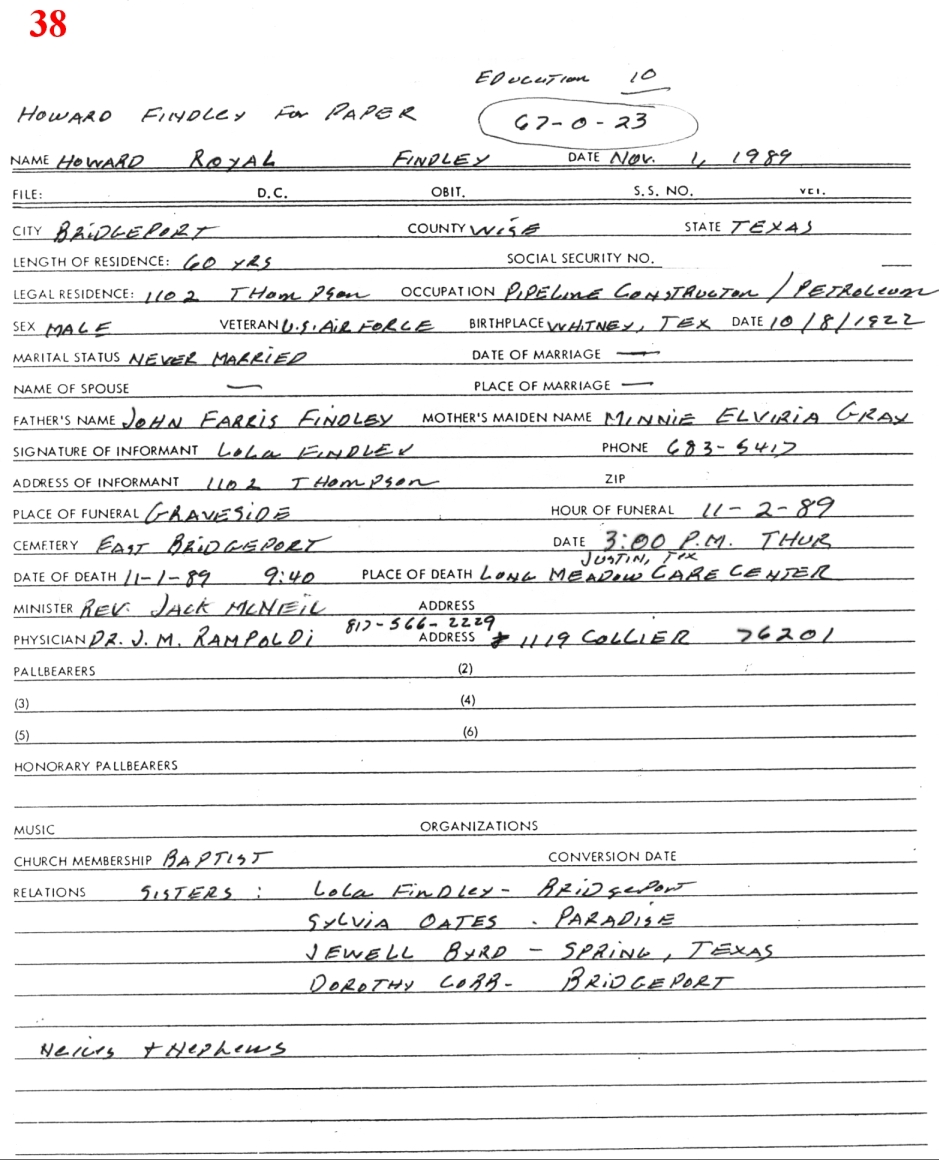 38
EDUCATION 10
HOWARD FINDLEY FOR PAPER 67-0-23
NAME HOWARD ROYAL FINDLEY DATE NOV. 1, 1989
FILE: D.C. OBIT. S.S. NO. VET.
CITY BRIDGEPORT COUNTY WISE STATE TEXAS
LENGTH OF RESIDENCE: 60 YRS SOCIAL SECURITY NO.
LEGAL RESIDENCE: 1102 THOMPSON OCCUPATION PIPELINE CONSTRUCTON / PETROLEUM
SEX MALE VETERAN U.S. AIR FORCE BIRTHPLACE WHITNEY, TEX DATE 10/8/1922
MARITAL STATUS NEVER MARRIED DATE OF MARRIAGE —
NAME OF SPOUSE — PLACE OF MARRIAGE —
FATHER'S NAME JOHN FARRIS FINDLEY MOTHER'S MAIDEN NAME MINNIE ELVIRIA GRAY
SIGNATURE OF INFORMANT LOLA FINDLEY PHONE 683-5417
ADDRESS OF INFORMANT 1102 THOMPSON ZIP
PLACE OF FUNERAL GRAVESIDE HOUR OF FUNERAL 11-2-89
CEMETERY EAST BRIDGEPORT DATE 3:00 P.M. THUR
JUSTIN, TEX
DATE OF DEATH 11-1-89 9:40 PLACE OF DEATH LONG MEADOW CARE CENTER
MINISTER REV. JACK MCNEIL ADDRESS
817-566-2229
PHYSICIAN DR. J. M. RAMPOLDI ADDRESS 1119 COLLIER 76201
PALLBEARERS (2)
(3) (4)
(5) (6)
HONORARY PALLBEARERS
MUSIC ORGANIZATIONS
CHURCH MEMBERSHIP BAPTIST CONVERSION DATE
RELATIONS SISTERS: LOLA FINDLEY - BRIDGEPORT
SYLVIA OATES - PARADISE
JEWELL BYRD - SPRING, TEXAS
DOROTHY COBB - BRIDGEPORT
Neices + Nephews